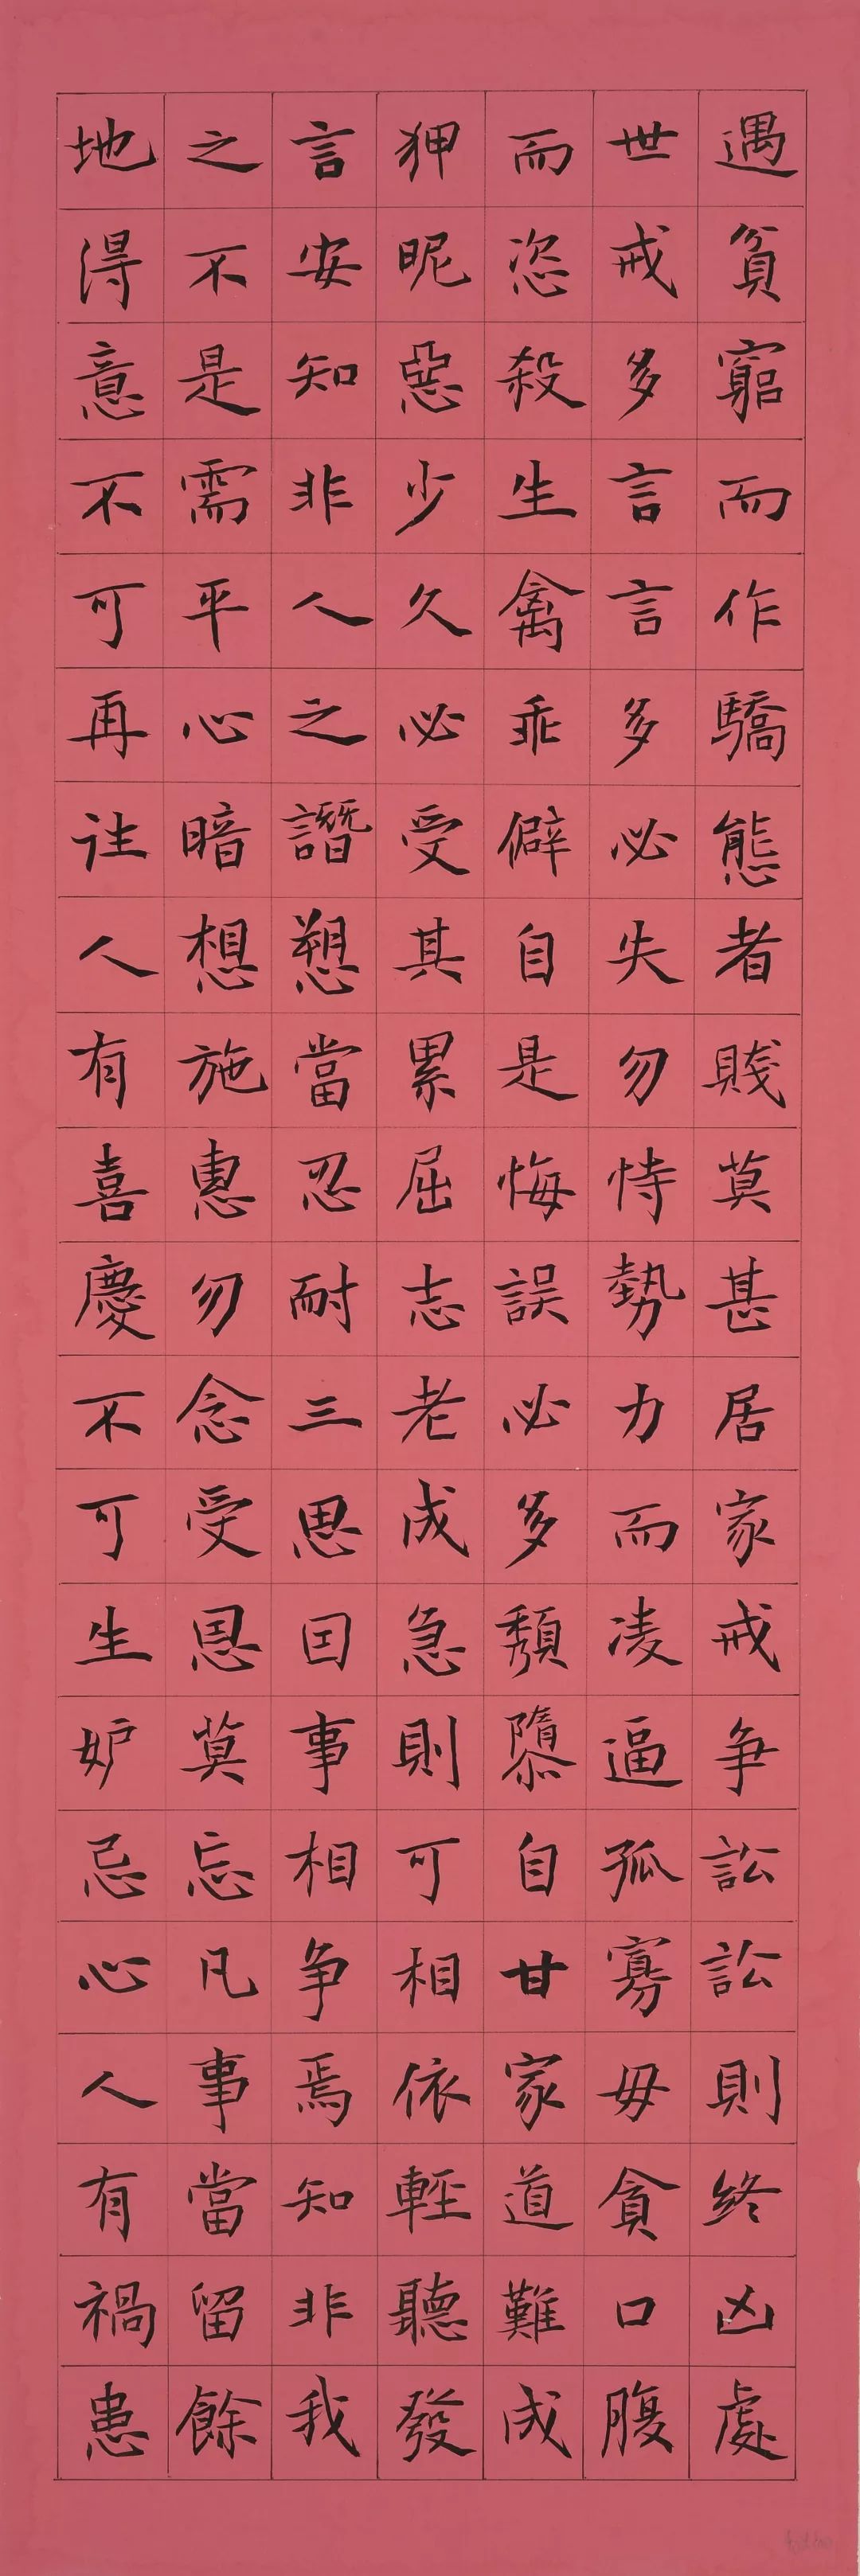 遇貧窮而作驕態者賤莫甚居家戒争訟訟則終凶處
世戒多言言多必失勿恃勢力而凌逼孤寡毋貪口腹
而恣殺生禽乖僻自是悔誤必多頽隳自甘家道難成
狎昵惡少久必受其累屈志老成急則可相依輕聽發
言安知非人之譖愬當忍耐三思因事相争焉知非我
之不是需平心暗想施惠勿念受恩莫忘凡事當留餘
地得意不可再往人有喜慶不可生妒忌心人有禍患